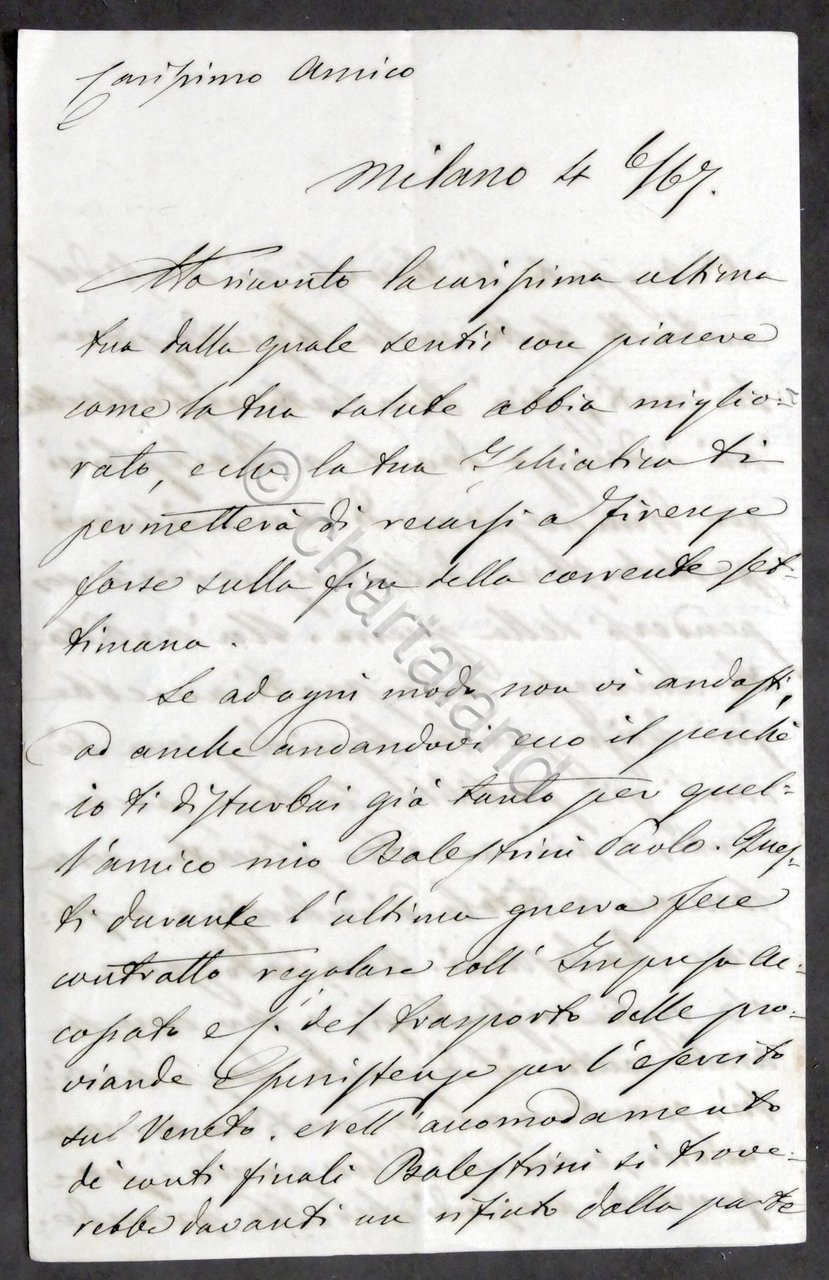 Carissimo Amico
Milano 4 6/67.
Ho ricevuto la carissima ultima
tua dalla quale sentii con piacere
come la tua salute abbia miglio-
rato, e che la tua Ischiatica ti
permetterà di recarsi a Firenze
forse sulla fine della corrente set-
timana.
Se ad ogni modo non vi andassi,
od anche andandovi ecco il perchè
io ti disturbai già tanto per quel-
l'amico mio Balestrini Paolo. Ques-
ti durante l'ultima guerra fece
contratto regolare coll' Impresa Ac-
cossato e C.i del trasporto delle pro-
viande e sussistenze per l'esercito
sul Veneto. Nell' accomodamento
di conti finali Balestrini si trove-
rebbe davanti un rifiuto dalla parte
© Chartaland